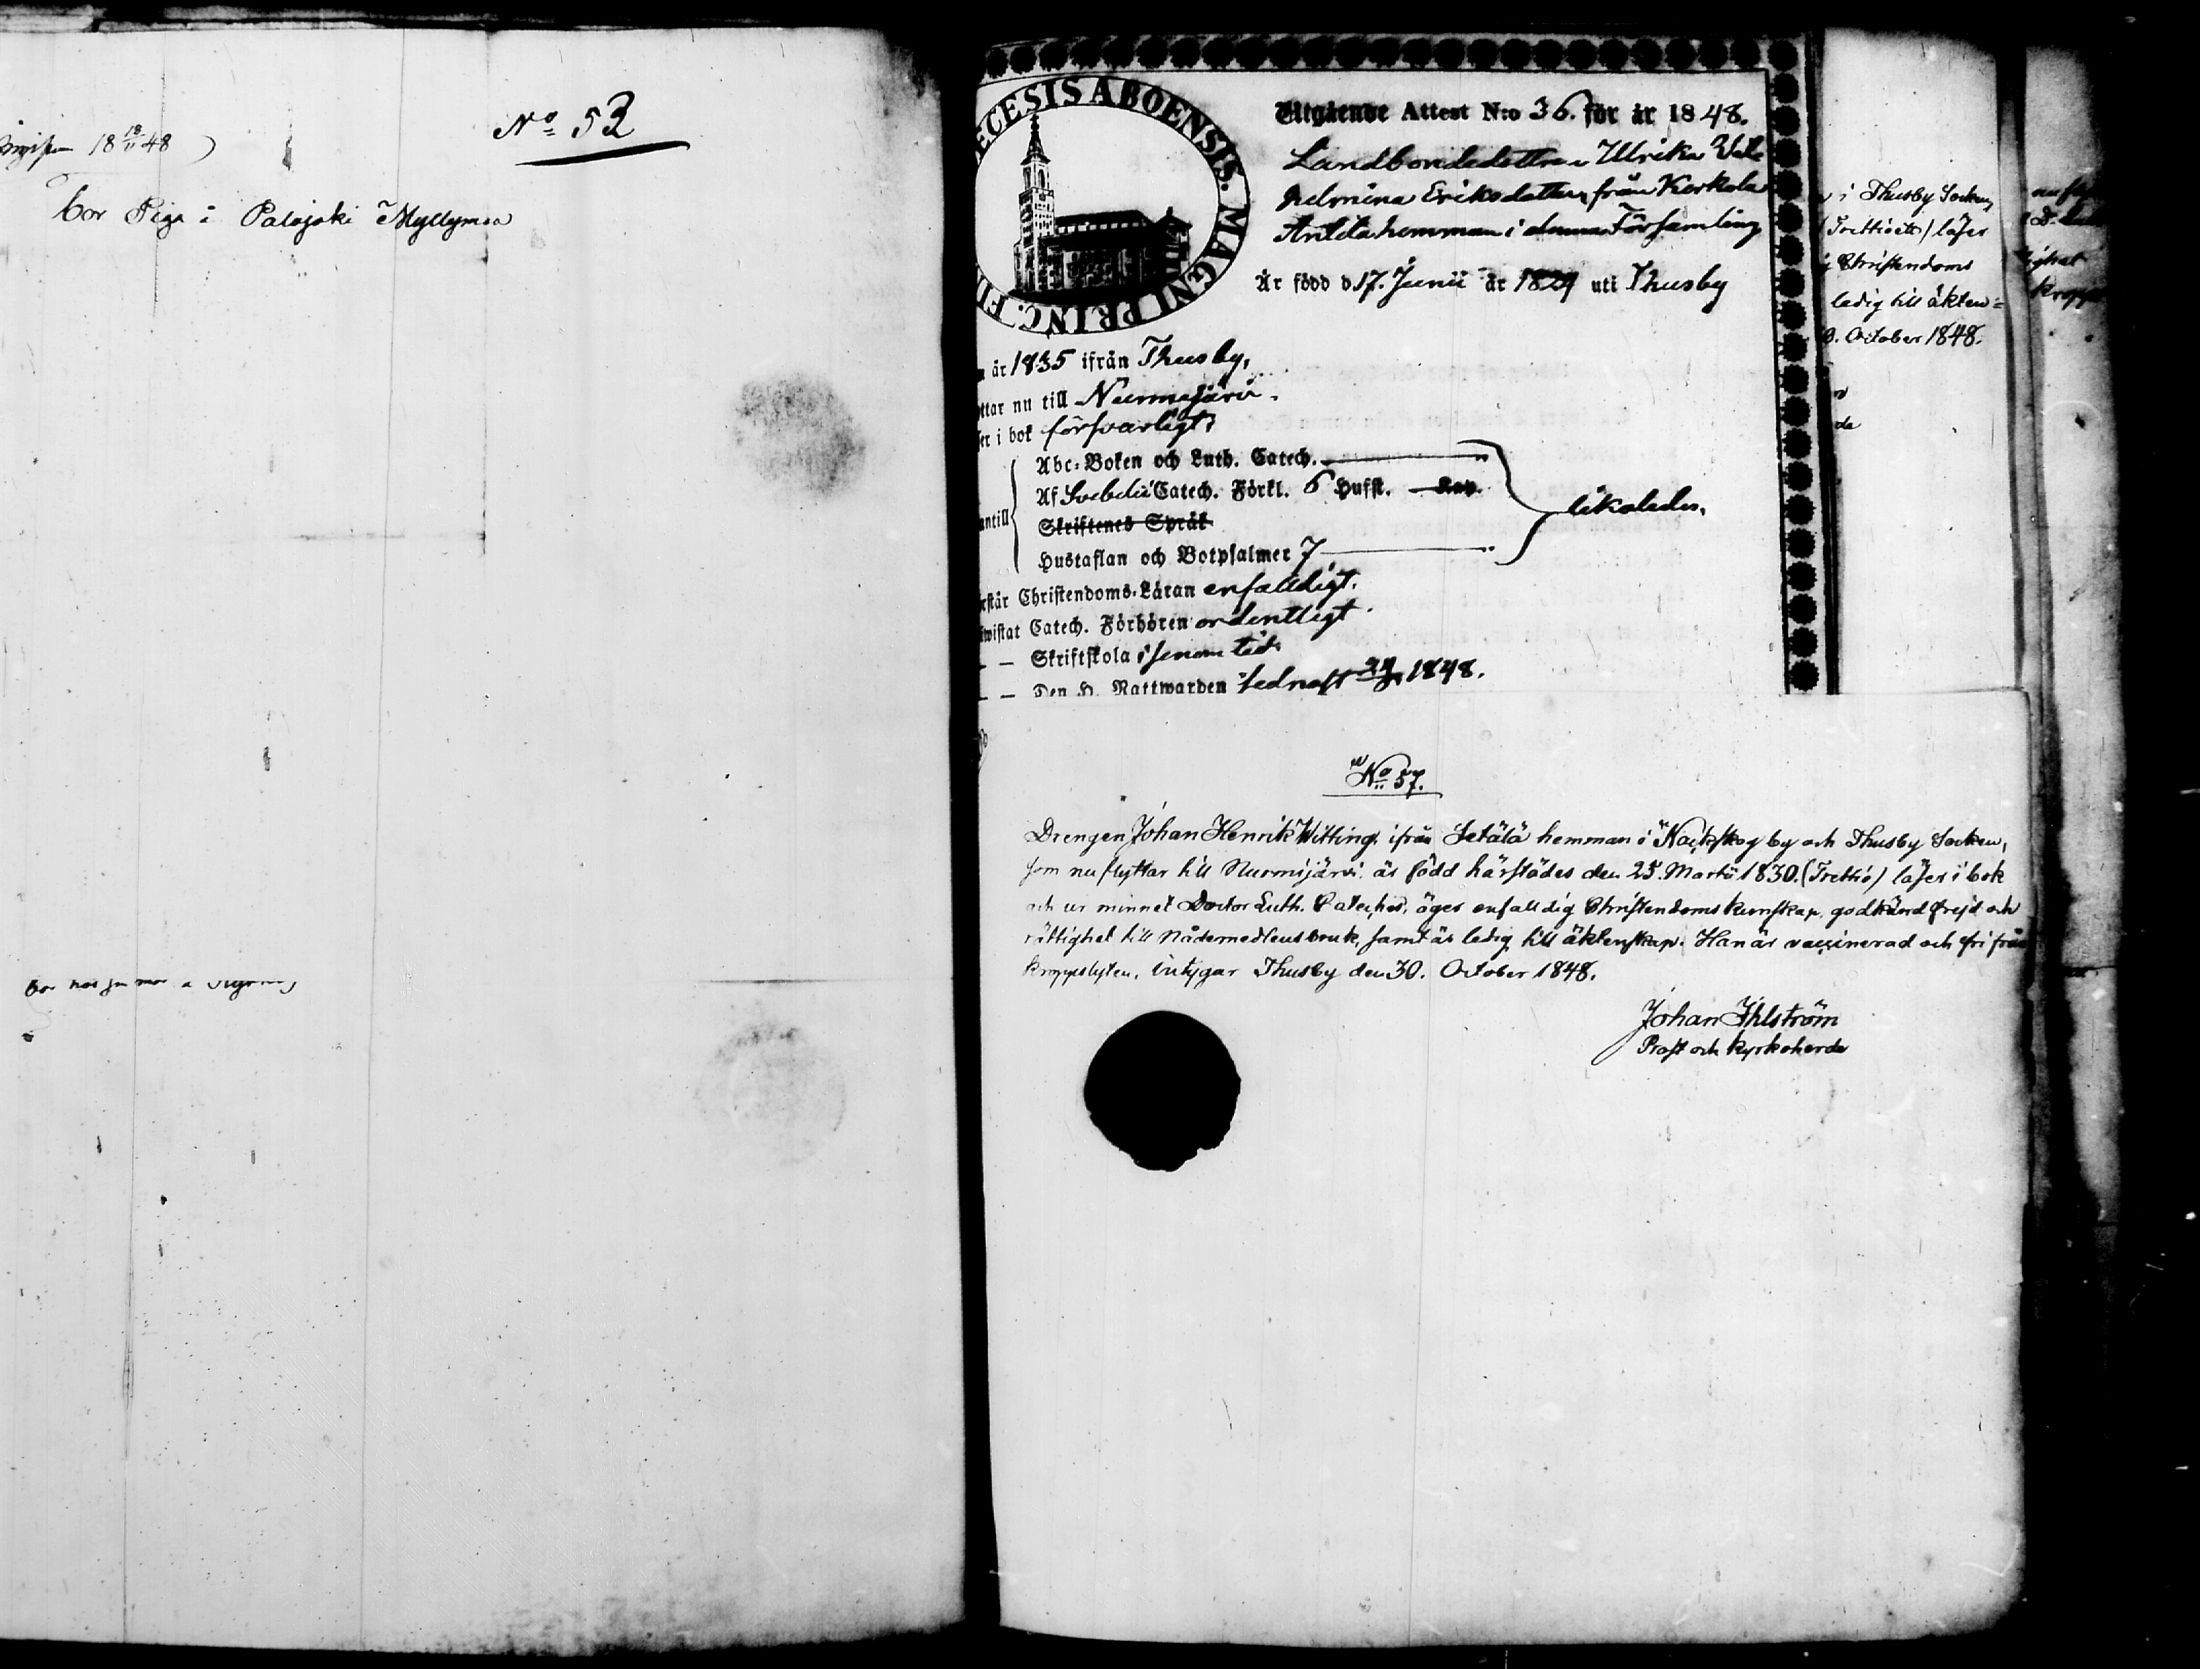 18 18/11 48 )
No 53
bor Piga i Palojoki Myllymaa
bor hos
ECESIS ABOENSIS. MAGNI PRINC. FI
Utgående Attest N:o 36. för år 1848.
Landbondedottren Ulrika Wil-
helmina Eriksdotter, från Kerkola
Anttila hemman i denna Församling
Är född d 17. Junii år 1829 uti Thusby
år 1835 ifrån Thusby,
ttar nu till Nurmijärvi.
ser i bok försvarligt,
Abc-Boken och Luth. Catech.
Af Svebelii Catech. Förkl. 6 Hufst.
antill
likaledes.
Skriftenes Språk
Hustaflan och Botpsalmer 7
rstår Christendoms-Läran enfalldigt.
wistat Catech. Förhören ordentligt
— — Skriftskola i sinom tid
— — Den H. Nattwarden sednast 1848.
No 57.
Drengen Johan Henrik Witting ifrån Setälä hemman i Näckskog by och Thusby Socken,
som nu flyttar till Nurmijärvi, är född härstädes den 25. Martii 1830. (Trettio) läser i bok
och ur minnet Doctor Luth. Cateches, äger enfalldig Christendoms kunskap, godkänd frejd och
rättighet till Nådemedlens bruk, samt är ledig till äktenskap. Han är vaccinerad och fri från
kroppslyten, intygar Thusby den 30. October 1848.
Johan Ihlström
Prost och Kyrkoherde
i Thusby Socken,
(Trettioett) läser
Christendoms
ledig till äkten=
October 1848.
de